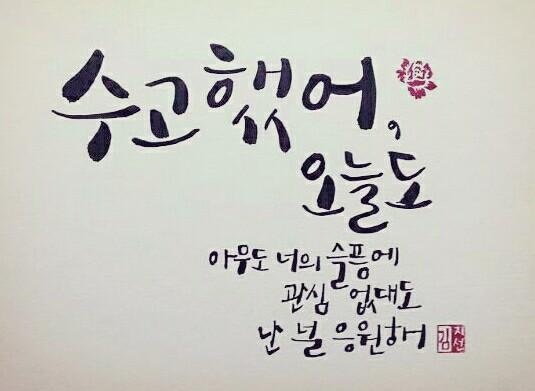 수고했어,
오늘도
아무도 너의 슬픔에
관심 없대도
난 널 응원해
김지선